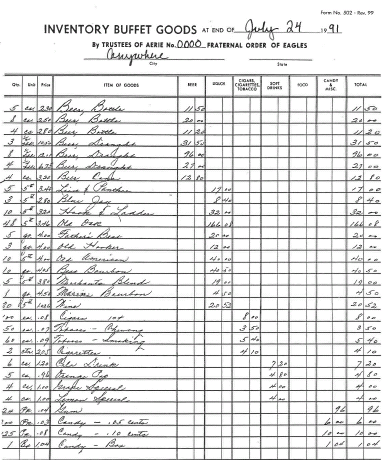 Form No. 502 - Rev. 99
INVENTORY BUFFET GOODS AT END OF July 24 1991
By TRUSTEES OF AERIE No. 0000 FRATERNAL ORDER OF EAGLES
Anywhere
City State
Qty. Unit Price ITEM OF GOODS BEER LIQUOR CIGARS, CIGARETTES, TOBACCO SOFT DRINKS FOOD CANDY & MISC. TOTAL
5 ca 2.30 Beer, Bottle 11 50 11 50
8 ca 2.50 Beer, Bottle 20 00 20 00
4 ca 2.80 Beer Bottle 11 20 11 20
3 10.50 Beer, Draught 31 50 31 50
8 Beer, Draught 96 00 96 00
4 6.75 Beer, Draught 27 00 27 00
4 ca 3.20 Beer Cans 12 80 12 80
5 5th 3.40 Lion & Panther 17 00 17 00
3 5th 2.80 Blue Jay 8 40 8 40
10 5th 3.20 Hook & Ladder 32 00 32 00
48 5th 3.46 Old Oak 166 08 166 08
5 4.00 Father's Best 20 00 20 00
3 4.00 Old Hooker 12 00 12 00
10 5th 4.00 Old American 40 00 40 00
10 4.05 Bess Bourbon 40 50 40 50
5 5th 3.80 Merchants Blend 19 00 19 00
1 4.50 Marine Bourbon 4 50 4 50
20 5th Wine 20 52 20 52
ea .08 Cigars 10¢ 8 00 8 00
50 ea .07 Tobacco - Chewing 3 50 3 50
60 ea .09 Tobacco - Smoking 5 40 5 40
2 2.05 Cigarettes 4 10 4 10
6 ca 1.20 Cola Drink 7 20 7 20
5 ca .96 Orange Pop 4 80 4 80
4 ca 1.00 Grape Special 4 00 4 00
4 ca 1.00 Lemon Special 4 00 4 00
24 .04 Gum 96 96
.03 Candy - .05 cents 6 00 6 00
.08 Candy - .10 cents 10 00 10 00
1 1.04 Candy - Box 1 04 1 04